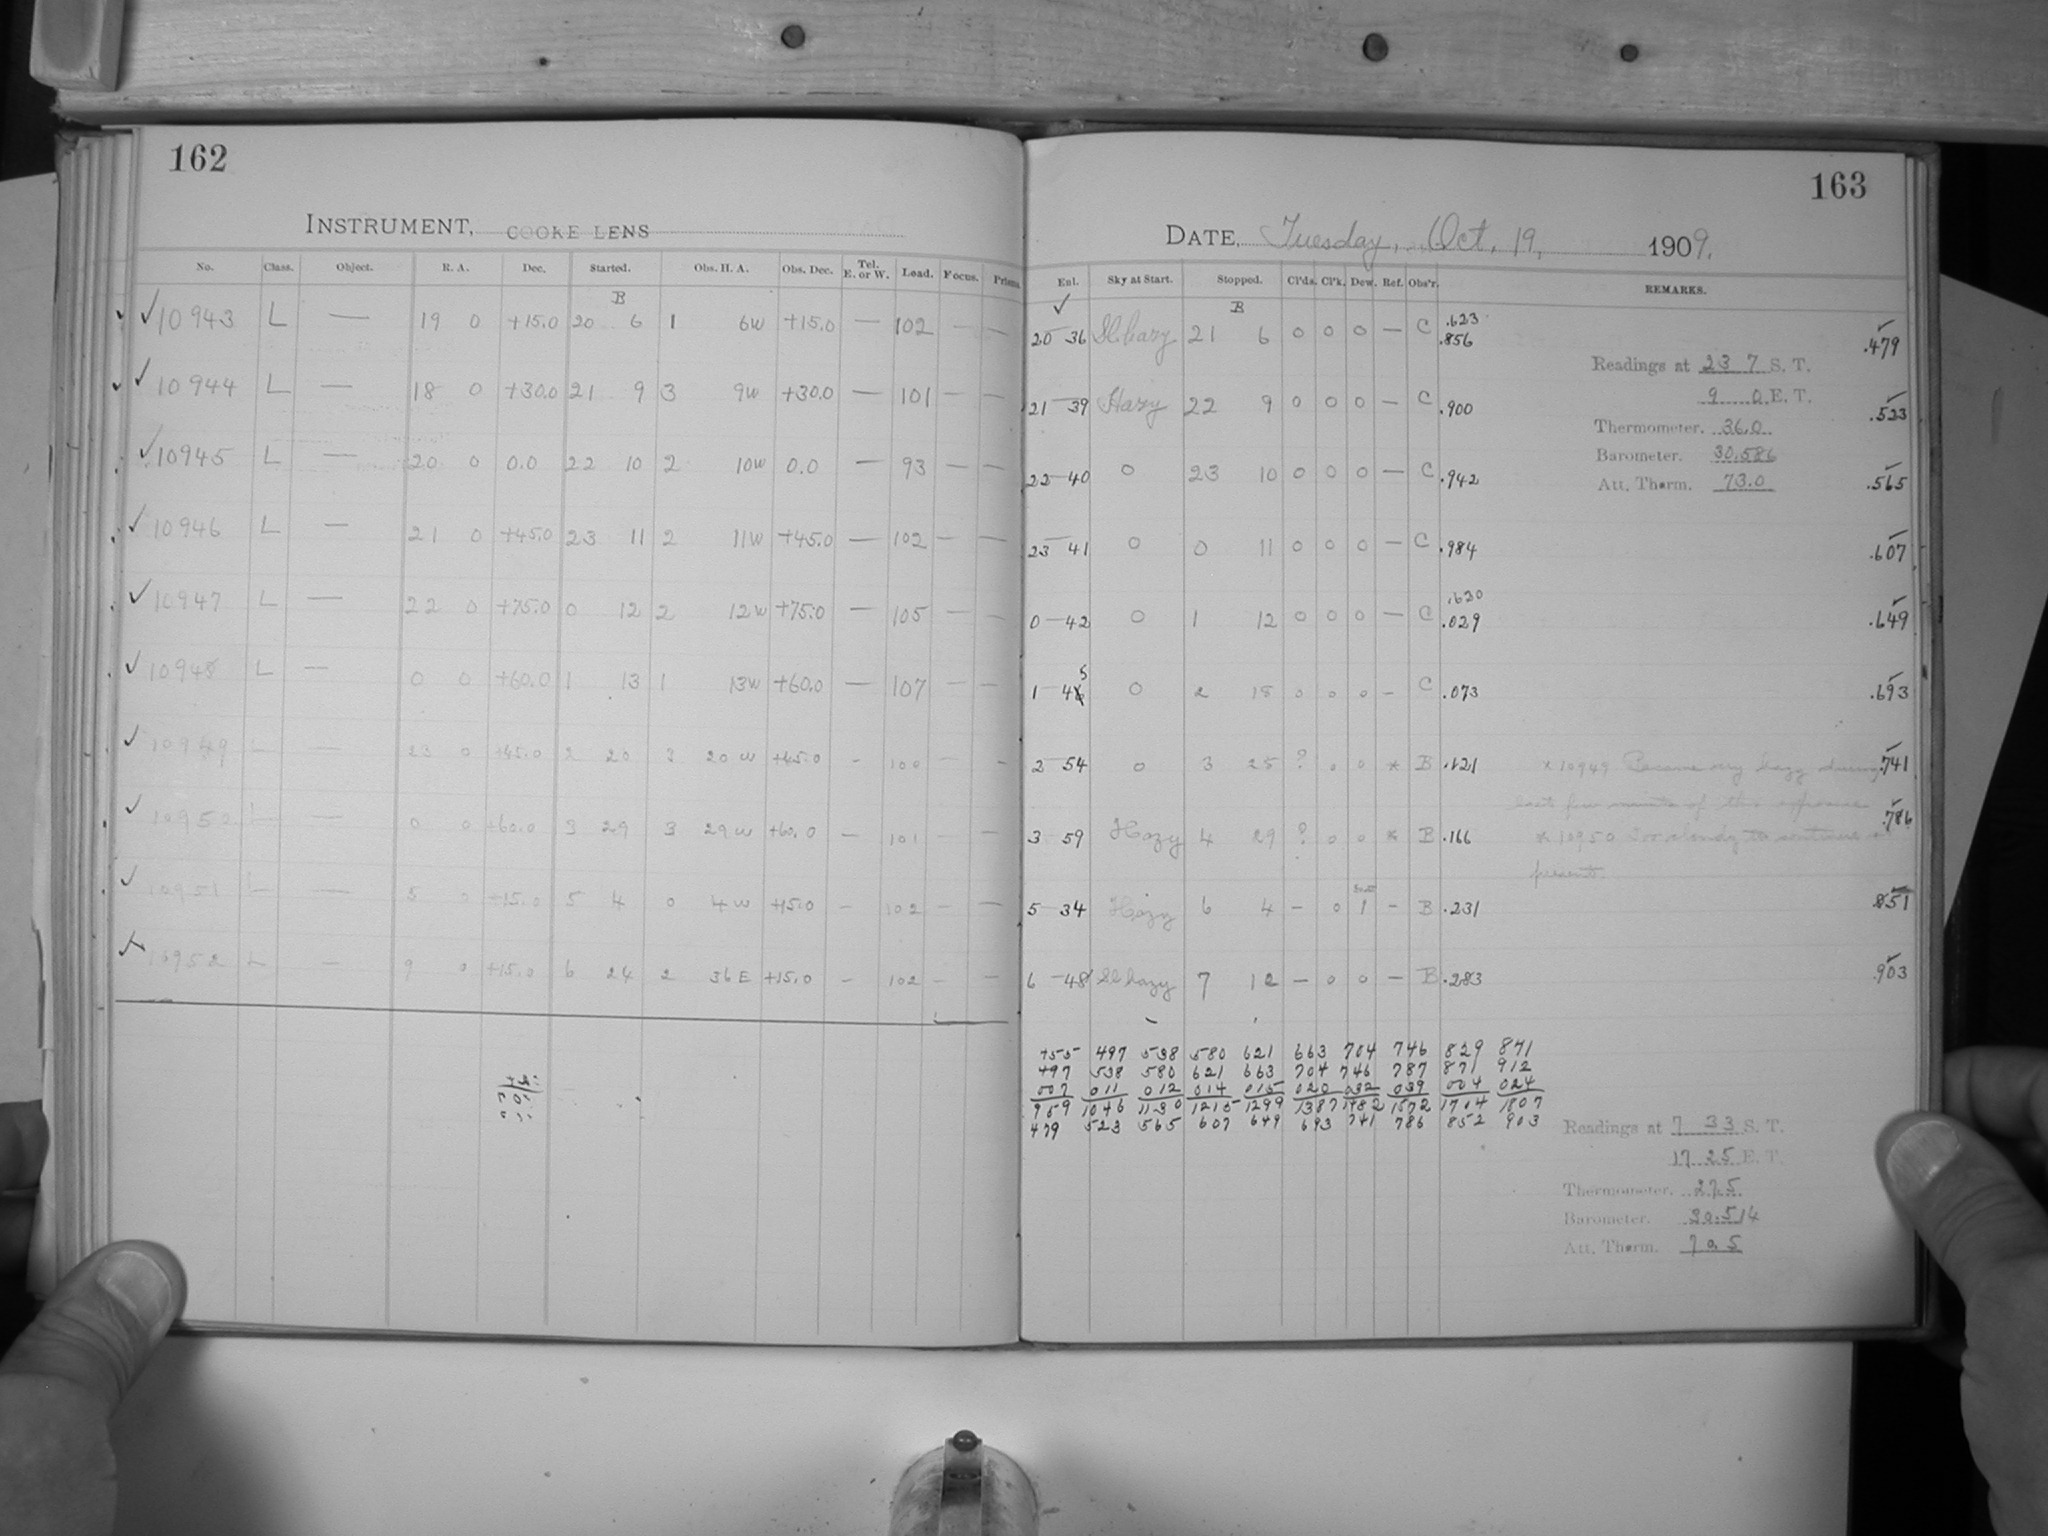 162
INSTRUMENT, COOKE LENS
No. Class. Object. R. A. Dec. Started. Obs. H. A. Obs. Dec. Tel. E. or W. Load. Focus. Prisms.
B
10943 L — 19 0 +15.0 20 6 1 6W +15.0 — 102 — —
10944 L — 18 0 +30.0 21 9 3 9W +30.0 — 101 — —
10945 L — 20 0 0.0 22 10 2 10W 0.0 — 93 — —
10946 L — 21 0 +45.0 23 11 2 11W +45.0 — 102 — —
10947 L — 22 0 +75.0 0 12 2 12W +75.0 — 105 — —
10948 L — 0 0 +60.0 1 13 1 13W +60.0 — 107 — —
10949 L — 23 0 +45.0 2 20 3 20 W +45.0 - 100 — -
10950 L — 0 0 +60.0 3 29 3 29 W +60.0 — 101 — —
10951 L — 5 0 +15.0 5 4 0 4 W +15.0 — 102 — —
10952 L — 9 0 +15.0 6 24 2 36 E +15.0 — 102 — —
163
DATE, Tuesday, Oct. 19, 1909.
Ent. Sky at Start. Stopped. Cl'ds. Cl'k. Dew. Ref. Obs'r. REMARKS.
✓ B
20 36 Sl. hazy 21 6 0 0 0 — C .623 .856 .479
Readings at 23 7 S. T.
9 0 E. T.
21 39 Hazy 22 9 0 0 0 — C .900 .523
Thermometer. 36.0
Barometer. 30.586
Att. Therm. 73.0
22 40 0 23 10 0 0 0 — C .942 .565
23 41 0 0 11 0 0 0 — C .984 .607
0 42 0 1 12 0 0 0 — C .630 .029 .649
1 45 0 2 18 0 0 0 - C .073 .693
2 54 0 3 25 ? 0 0 * B .121 .741
* 10949 Became very hazy during
last few minutes of this exposure
3 59 Hazy 4 29 ? 0 0 * B .166 .786
* 10950 Too cloudy to continue at
present.
5 34 Hazy 6 4 — 0 1 - B .231 .851
6 48 Sl hazy 7 12 — 0 0 — B .283 .903
455 497 538 580 621 663 704 746 829 871
497 538 580 621 663 704 746 787 871 912
007 011 012 014 015 020 032 039 004 024
959 1046 1130 1215 1299 1387 1482 1572 1704 1807
479 523 565 607 649 693 741 786 852 903
Readings at 7 33 S. T.
17 25 E. T.
Thermometer. 27.5
Barometer. 30.514
Att. Therm. 70.5